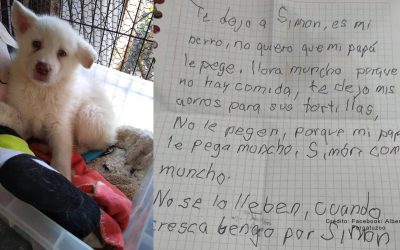 Te dejo a Simon, es mi
perro, no quiero que mi papá
le pege, llora muncho porque
no hay comida, te dejo mis
aorros para sus tortillas,
No le pegen, porque mi pap
le pega muncho, Simón com
muncho.
No se lo lleben, cuando
cresca bengo por Simon
Crédito: Facebook/ Alber